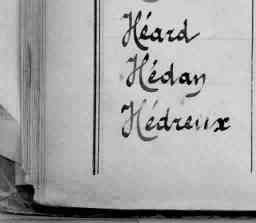 Héard
Hédan
Hédreux